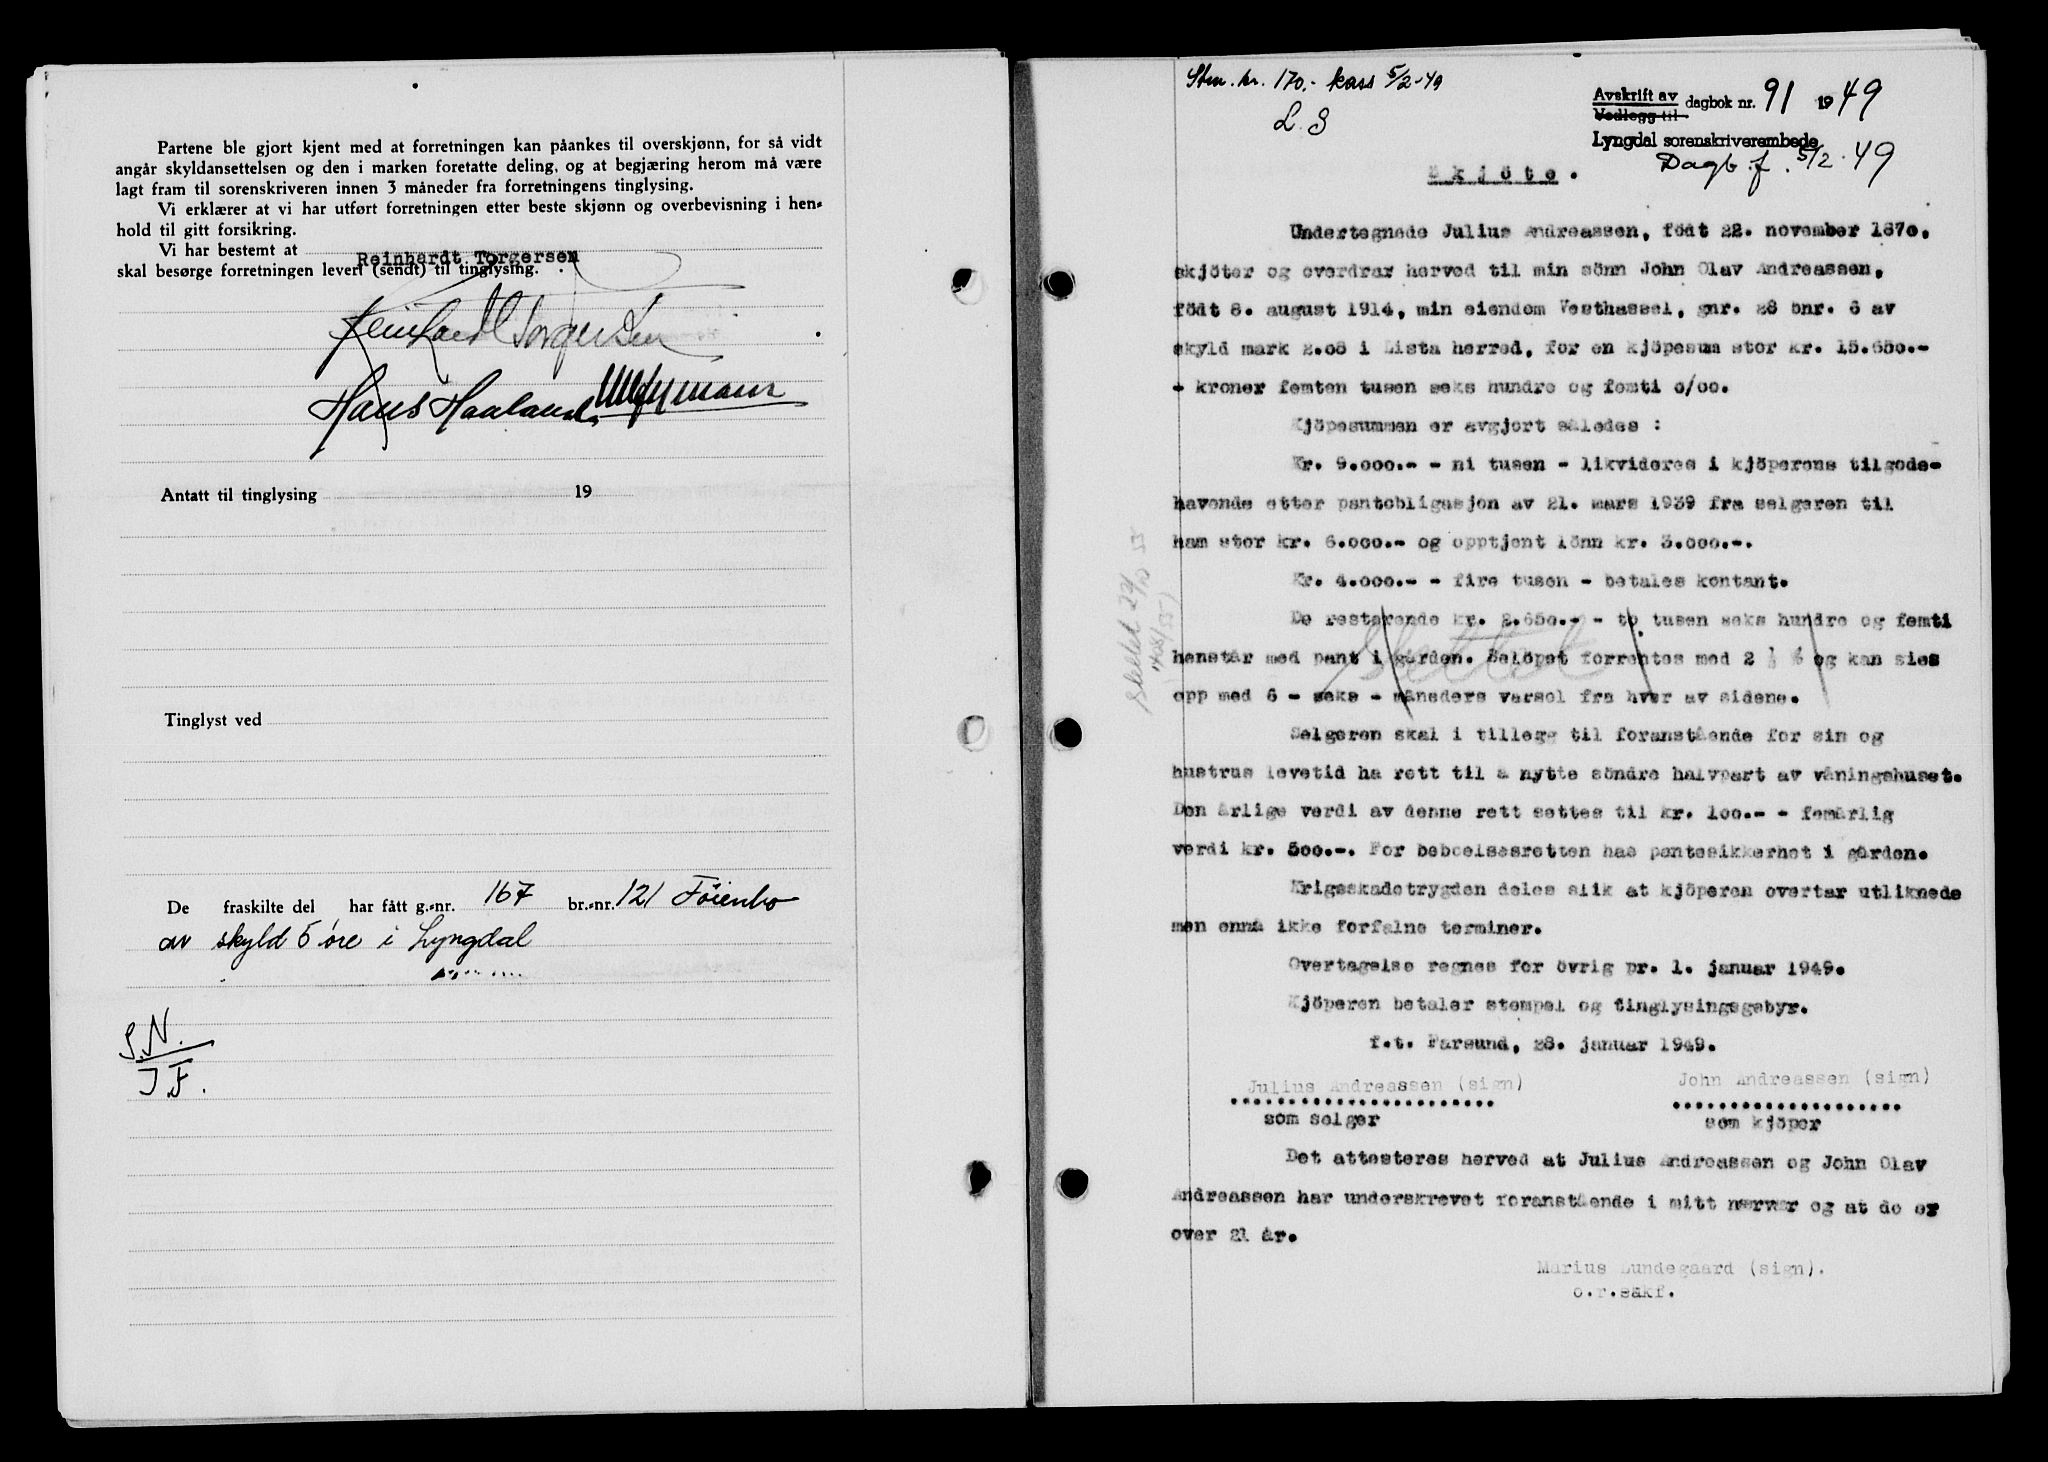 Partene ble gjort kjent med at forretningen kan påankes til overskjønn, for så vidt
angår skyldansettelsen og den i marken foretatte deling, og at begjæring herom må være
lagt fram til sorenskriveren innen 3 måneder fra forretningens tinglysing.
Vi erklærer at vi har utført forretningen etter beste skjønn og overbevisning i hen-
hold til gitt forsikring.
Vi har bestemt at
Reinhardt Torgersen
skal besørge forretningen levert (sendt) til tinglysing.
Reinhardt Torgersen
Hans Haaland
Antatt til tinglysing 19
Tinglyst ved
De fraskilte del har fått g.-nr. 167 br.-nr. 121 Föienbo
av skyld 5 øre i Lyngdal
S.N.
J F.
Stm. kr. 170.- kass 5/2-49
L. S
Avskrift av dagbok nr. 91 1949
Vedlegg til
Lyngdal sorenskriverembede
Dagb. f. 5/2. 49
Skjöte.
Undertegnede Julius Andreassen, födt 22. november 1870,
skjöter og overdrar herved til min sönn John Olav Andreassen,
födt 8. august 1914, min eiendom Vesthassel, gnr. 28 bnr. 6 av
skyld mark 2.08 i Lista herred, for en kjöpesum stor kr. 15.650.-
- kroner femten tusen seks hundre og femti o/oo.
Kjöpesummen er avgjort således :
Kr. 9.000.- - ni tusen - likvideres i kjöperens tilgode-
havende etter pantobligasjon av 21. mars 1939 fra selgeren til
ham stor kr. 6.000.- og opptjent lönn kr. 3.000.-.
Kr. 4.000.- - fire tusen - betales kontant.
De resterende kr. 2.650.- - to tusen seks hundre og femti
henstår med pant i gården. Belöpet forrentes med 2 ½ % og kan sies
opp med 6 - seks - måneders varsel fra hver av sidene.
Slettet
Slettet 29/10 55
(1408/55)
Selgeren skal i tillegg til foranstående for sin og
hustrus levetid ha rett til å nytte söndre halvpart av våningshuset.
Den årlige verdi av denne rett settes til kr. 100.- - femårlig
verdi kr. 500.-. For beboelsesretten has pantesikkerhet i gården.
Krigsskadetrygden deles slik at kjöperen overtar utliknede
men ennå ikke forfalne terminer.
Overtagelse regnes for övrig pr. 1. januar 1949.
Kjöperen betaler stempel og tinglysingsgebyr.
f.t. Farsund, 28. januar 1949.
Julius Andreassen (sign) John Andreassen (sign)
som selger som kjöper
Det attesteres herved at Julius Andreassen og John Olav
Andreassen har underskrevet foranstående i mitt nærvær og at de er
over 21 år.
Marius Lundegaard (sign).
o.r.sakf.